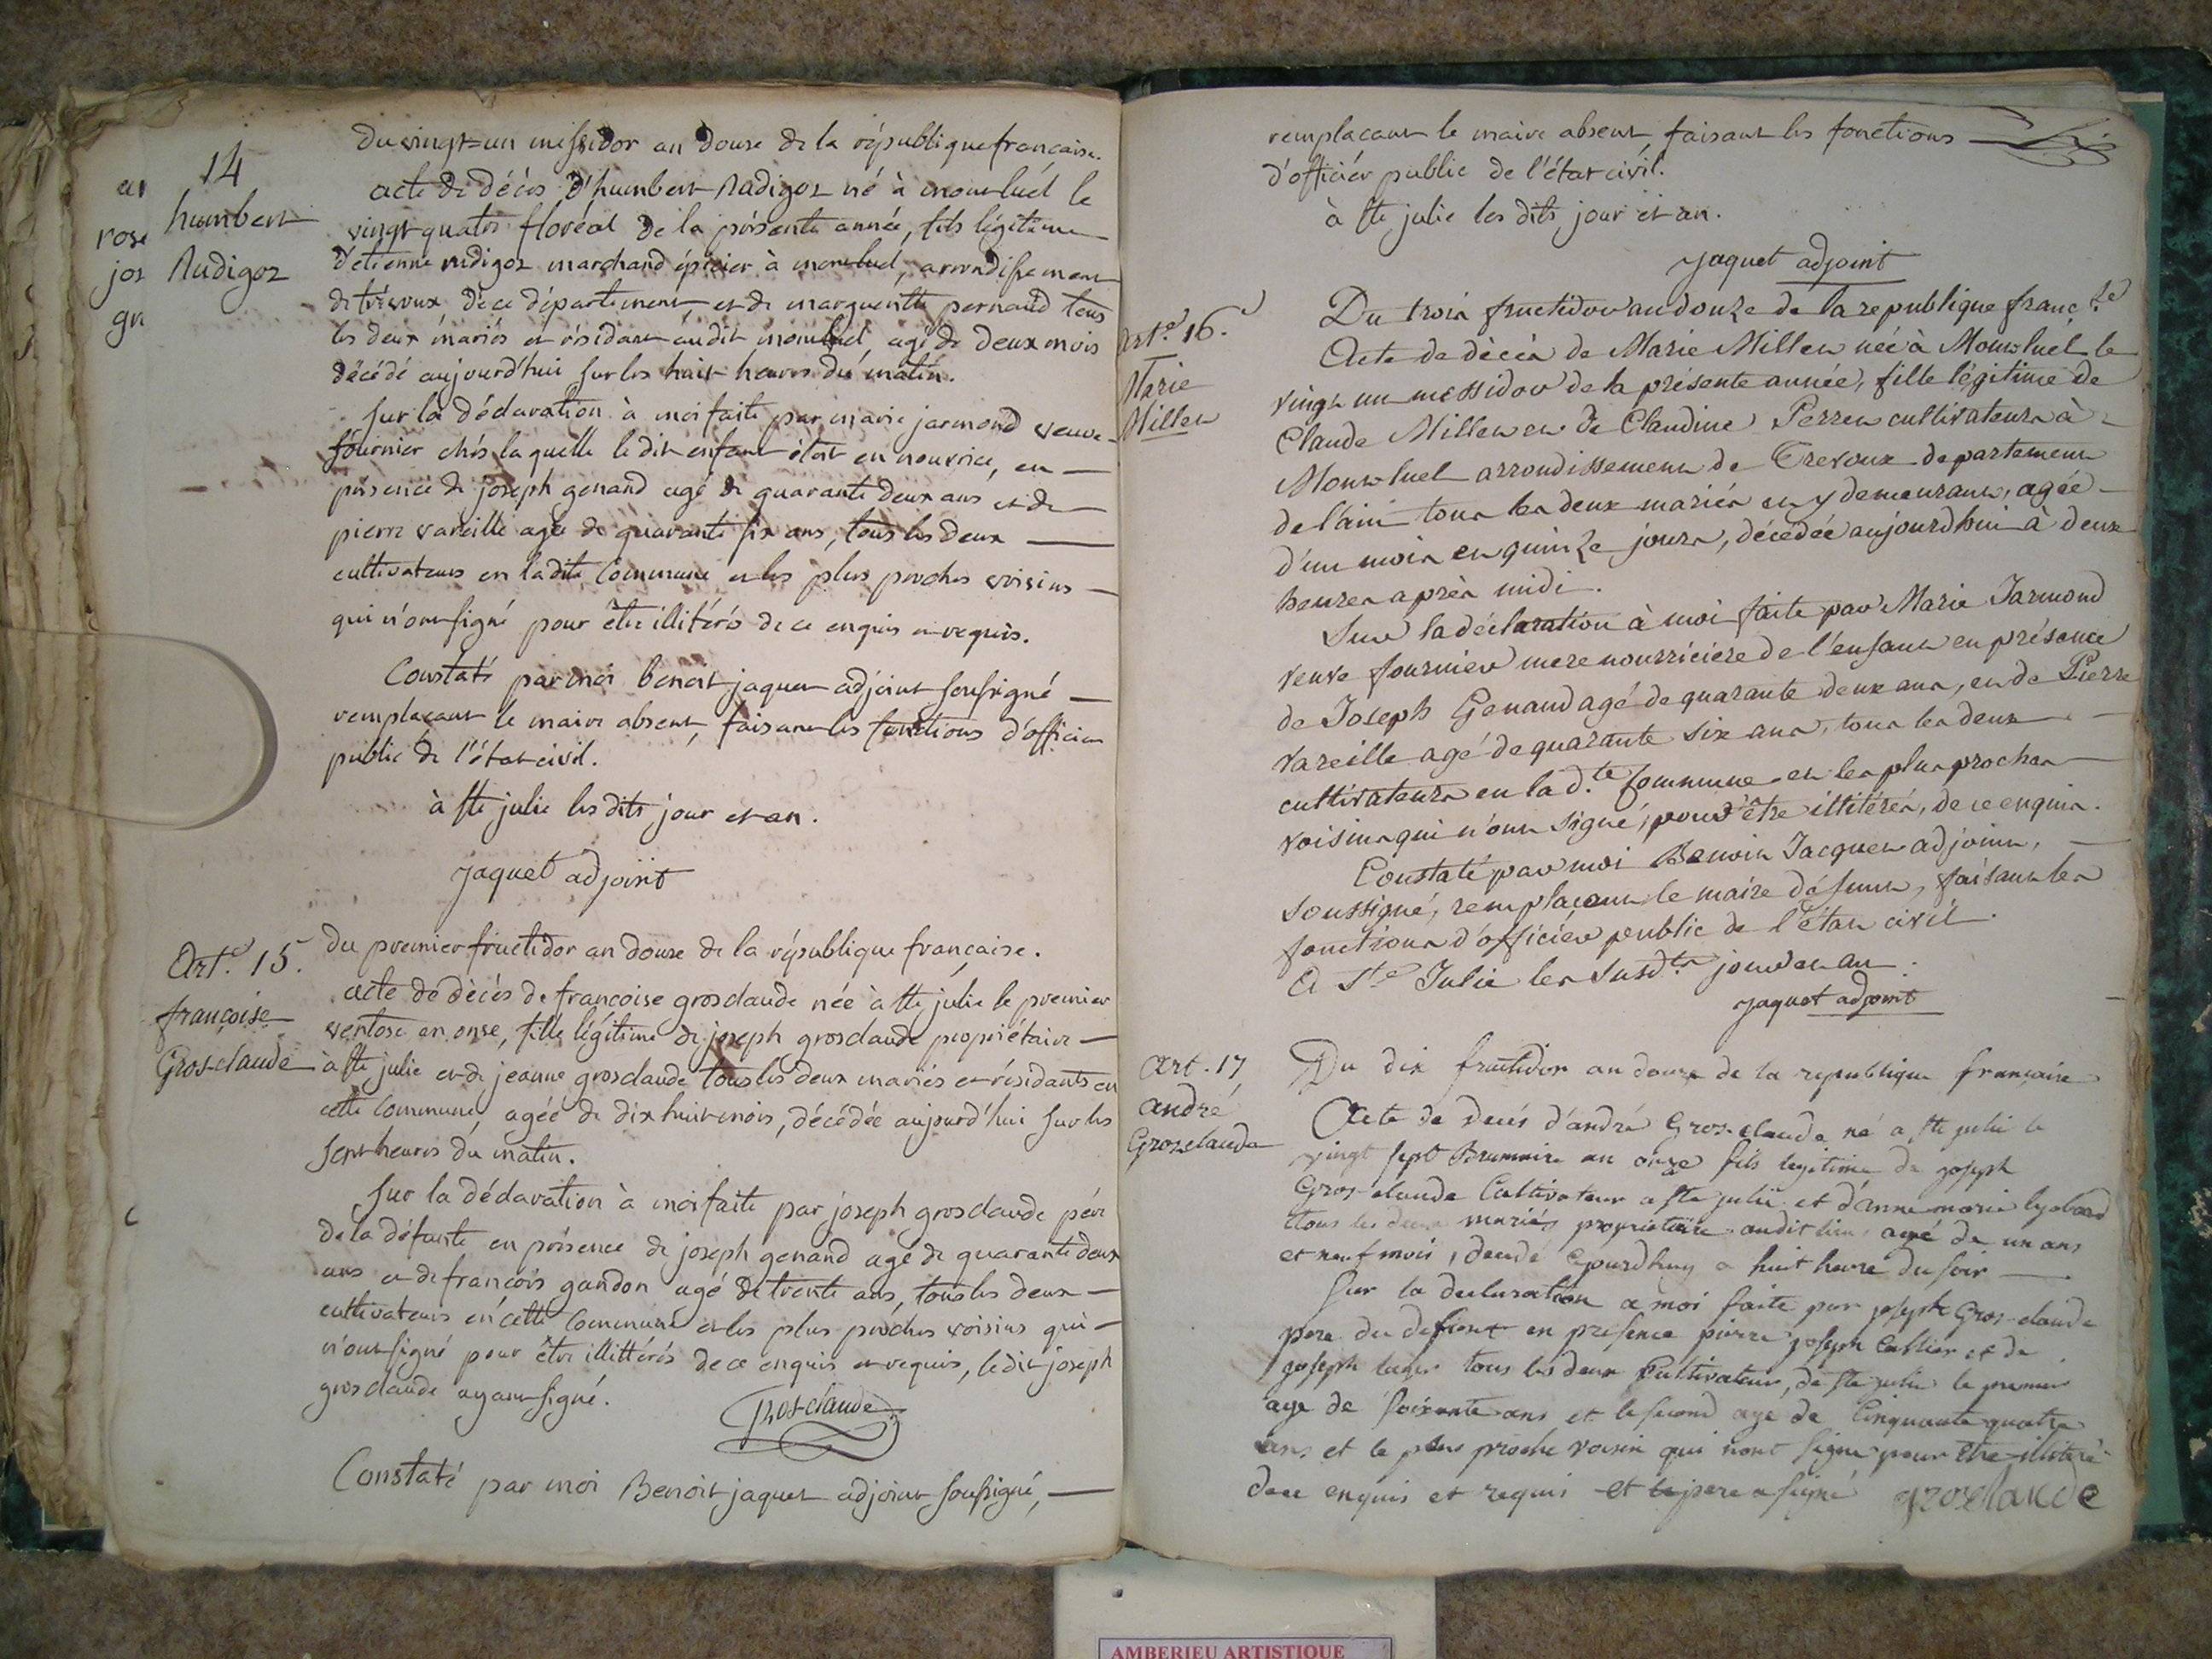 14
humbert
Rudigoz
ar
rose
jos
gr
Du vingt=un messidor an douze de la république française.
acte de décès d'humbert Rudigoz né à montluel le
vingt quatre floréal de la présente année, fils légitime
d'étienne rudigoz marchand épicier à montluel, arrondissement
de trévoux, de ce département, et de marguerithe pernaud tous
les deux mariés et résidant au dit montluel, agé de deux mois
décédé aujourd'hui sur les huit heures du matin.
Sur la déclaration à moi faite par marie jarmond veuve
fournier chés laquelle le dit enfant étoit en nourrice, en
présence de joseph genand agé de quarante deux ans et de
pierre vareille agé de quarante six ans, tous les deux
cultivateurs en ladite Commune et les plus proches voisins
qui n'ont signé pour être illitérés de ce enquis et requis.
Constaté par moi benoit jaquet adjoint soussigné
remplaçant le maire absent, faisant les fonctions d'officier
public de l'état civil.
à ste julie les dits jour et an.
jaquet adjoint
Art.e 15.
françoise
Grosclaude
du premier fructidor an douze de la république française.
acte de décès de françoise grosclaude née à ste julie le premier
ventose an onze, fille légitime de joseph grosclaude propriétaire
à ste julie et de jeanne grosclaude tous les deux mariés et résidants en
cette commune, agée de dix huit mois, décédée aujourd'hui sur les
sept heures du matin.
Sur la déclaration à moi faite par joseph grosclaude père
de la défunte en présence de joseph genand agé de quarante deux
ans et de françois gandon agé de trente ans, tous les deux
cultivateurs en cette Commune et les plus proches voisins qui
n'ont signé pour être illittérés de ce enquis et requis, le dit joseph
grosclaude ayant signé.
Grosclaude
Constaté par moi Benoit jaquet adjoint soussigné,
remplacant le maire absent, faisant les fonctions
d'officiér public de l'état civil.
à ste julie les dits jour et an.
jaquet adjoint
Art.e 16.
Marie
Millet
Du trois fructidor an douze de la republique franc.se
Acte de décès de Marie Millet née à Montluel le
vingt un messidor de la présente année, fille légitime de
Claude Millet et de Claudine Perret cultivateurs à
Montluel arrondissement de Trevoux departement
de l'ain tous les deux mariés et y demeurant, agée
d'un mois et quinze jours, décédée aujourdhui à deux
heures après midi.
Sur la déclaration à moi faite par Marie Jarmond
veuve fournier mere nourriciere de l'enfant en présence
de Joseph Genand agé de quarante deux ans, et de Pierre
Vareille agé de quarante six ans, tous les deux
cultivateurs en la d.te Commune et les plus proches
voisins qui n'ont signé, pour être illitérés, de ce enquis.
Constaté par moi Benoit Jacquet adjoint,
soussigné, remplaçant le maire défunt, faisant les
fonctions d'officier public de l'état civil.
A S.te Julie les susd.ts jour et an.
jaquet adjoint
Art. 17
André
Grosclaude
Du dix fructidor an douze de la republique française
Acte de decés d'andré Gros-claude né a ste julie le
vingt sept Brumaire an onze fils legitime de joseph
Gros-claude Cultivateur a ste julie et d'anne marie
tous les deux mariés proprietaire audit lieu, agé de un ans
et neuf mois, decedé ajourdhuy a huit heure du soir
Sur la declaration a moi faite par joseph Gros-claude
pere du defunt en presence pierre joseph et de
joseph tous les deux Cultivateur, de ste julie le premier
age de soixante ans et le second agé de Cinquante quatre
ans, et le plus proche voisin qui nont signe pour être illiteré
dece enquis et requis et le pere a signé
groselaude
AMBERIEU ARTISTIQUE